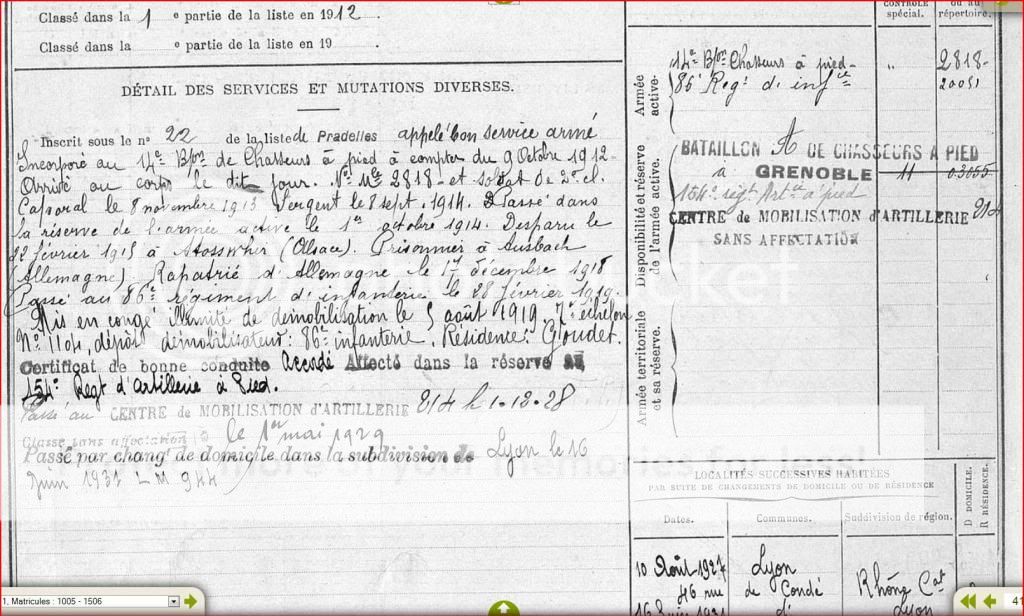 Classé dans la 1 e partie de la liste en 1912.
Classé dans la e partie de la liste en 19 .
DÉTAIL DES SERVICES ET MUTATIONS DIVERSES.
Inscrit sous le no 22 de la liste de Pradelles appelé bon service armé
Incorporé au 14e Bon de Chasseurs à pied à compter du 9 Octobre 1912-
Arrivé au corps le dit jour. No Mle 2818- et soldat de 2e cl.
Caporal le 8 novembre 1913 Sergent le 8 sept. 1914. Passé dans
la réserve de l'armée active le 1er octobre 1914. Disparu le
22 février 1915 à (Alsace). Prisonnier à
(Allemagne). Rapatrié d'Allemagne le 17 décembre 1918
Passé au 86e régiment d'infanterie le 28 février 1919.
Mis en congé illimité de démobilisation le 5 août 1919, 7e échelon
No 1104, dépôt démobilisateur: 86e infanterie. Résidence: Goudet.
Certificat de bonne conduite Accordé Affecté dans la réserve au
154e Regt d'artillerie à Pied.
Passé au CENTRE de MOBILISATION d'ARTILLERIE 214 le 1-12-28
Classé sans affectation le 1er mai 1929
Passé par changt de domicile dans la subdivision de Lyon le 16
Juin 1931 L M 944
CONTRÔLE
spécial.
ou au
répertoire.
Armée
active.
14e Bon Chasseurs à pied-
" 2818-
86e Regt d'infie
20051
Disponibilité et réserve
de l'armée active.
BATAILLON A DE CHASSEURS A PIED
à GRENOBLE
154e régt Artie à pied
CENTRE de MOBILISATION d'ARTILLERIE 214
SANS AFFECTATION
Armée territoriale
et sa réserve.
LOCALITÉS SUCCESSIVES HABITÉES
PAR SUITE DE CHANGEMENTS DE DOMICILE OU DE RÉSIDENCE
D DOMICILE.
R RÉSIDENCE.
Dates.
Communes.
Subdivision de région.
10 Août 1927
Lyon
46 rue
de Condé
Rhône Cal
Lyon
1. Matricules : 1005 - 1506
41